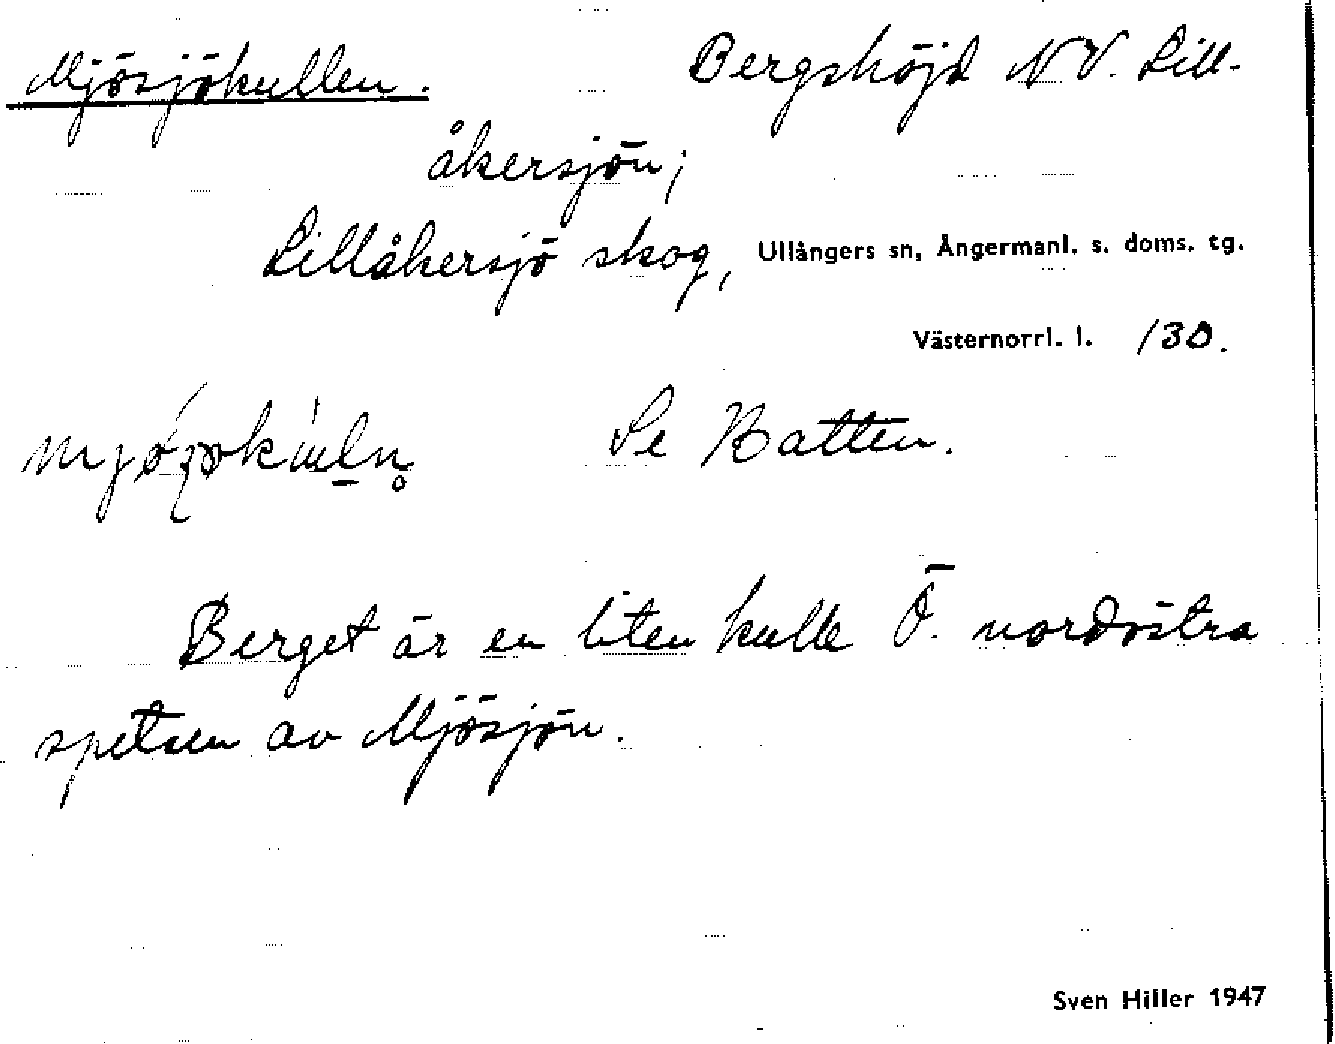 Mjösjökullen. Bergshöjd NV. Lill-
åkersjön;
Lillåkersjö skog, Ullångers sn, Ångermanl. s. doms. tg.
Västernorrl. l. 130.
Se Batten.
Berget är en liten kulle Ö. nordöstra
spetsen av Mjösjön.
Sven Hiller 1947